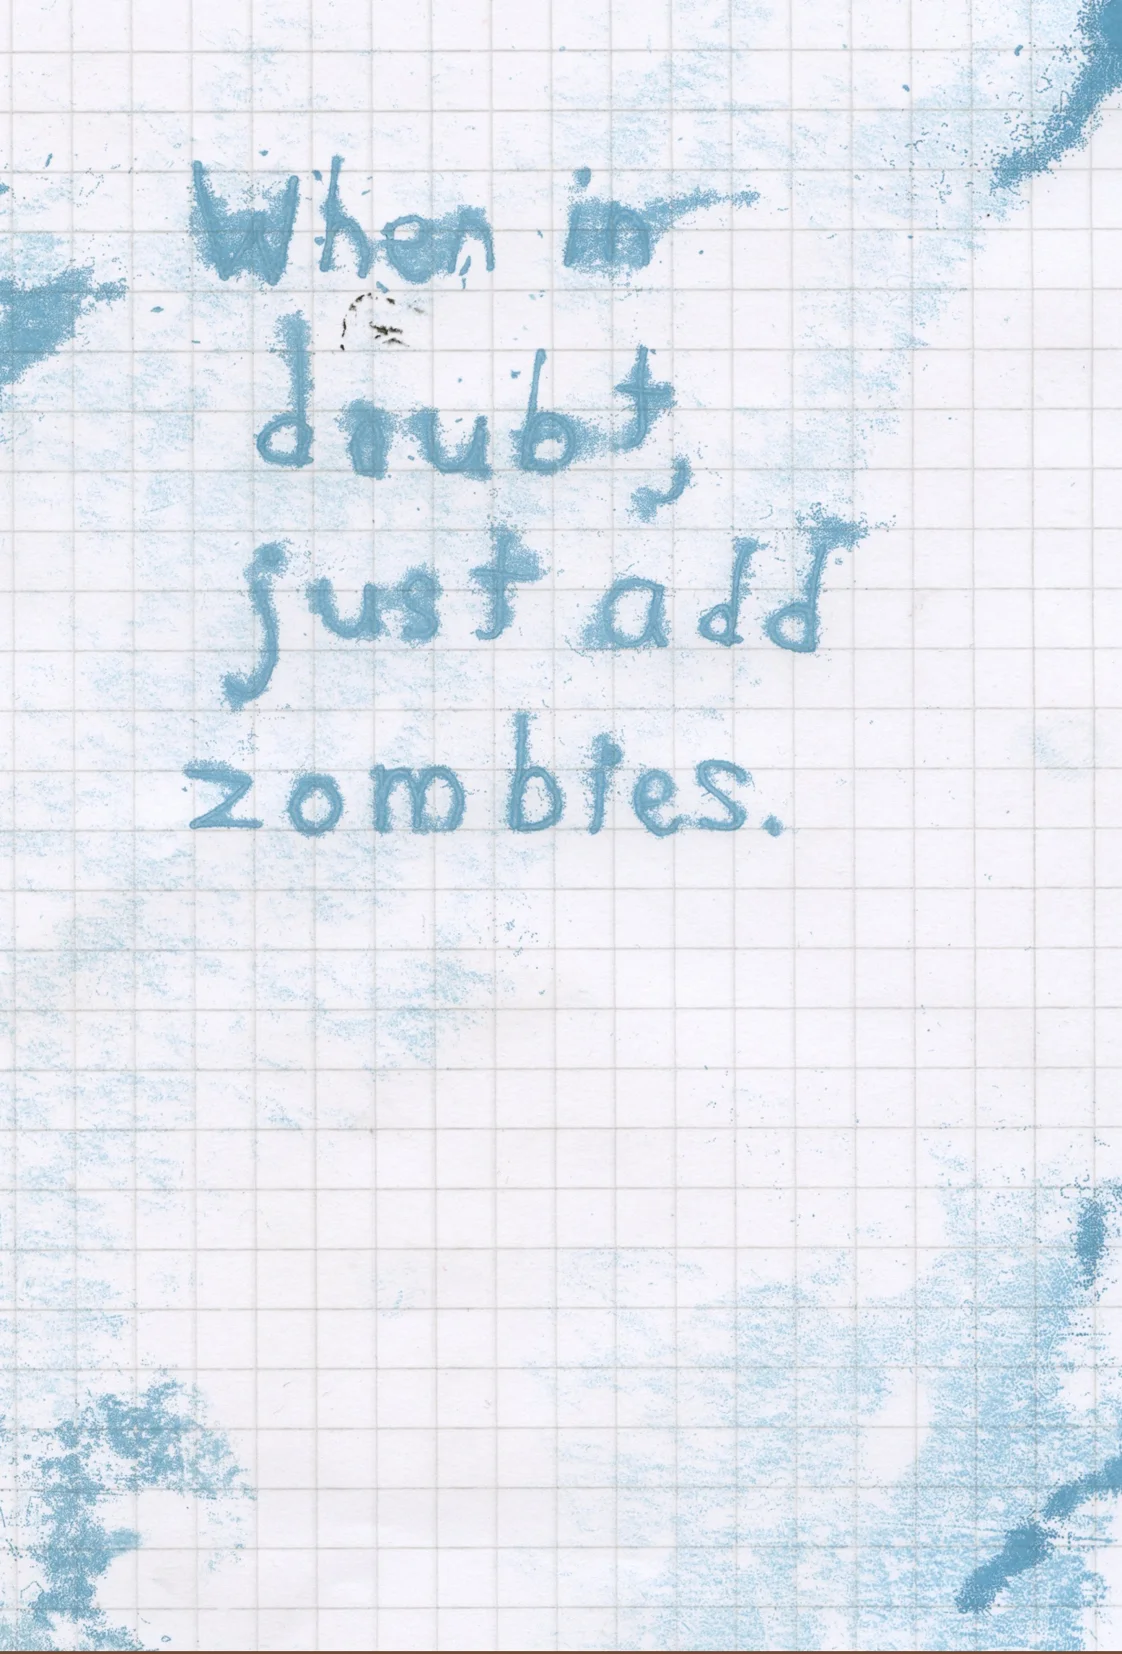 When in
doubt,
just add
zombies.